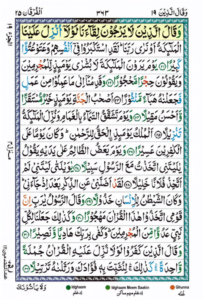 وقال الذين ١٩
٣٦٣
الفرقان ٢٥
وَقَالَ الَّذِيْنَ لَا يَرْجُوْنَ لِقَآءَنَا لَوْلَآ اُنْزِلَ عَلَيْنَا
الْمَلٰٓئِكَةُ اَوْ نَرٰى رَبَّنَا ؕ لَقَدِ اسْتَكْبَرُوْا فِيْٓ اَنْفُسِهِمْ وَعَتَوْ عُتُوًّا
كَبِيْرًا ۝ يَوْمَ يَرَوْنَ الْمَلٰٓئِكَةَ لَا بُشْرٰى يَوْمَئِذٍ لِّلْمُجْرِمِيْنَ
وَيَقُوْلُوْنَ حِجْرًا مَّحْجُوْرًا ۝ وَقَدِمْنَآ اِلٰى مَا عَمِلُوْا مِنْ عَمَلٍ
فَجَعَلْنٰهُ هَبَآءً مَّنْثُوْرًا ۝ اَصْحٰبُ الْجَنَّةِ يَوْمَئِذٍ خَيْرٌ مُّسْتَقَرًّا
وَّاَحْسَنُ مَقِيْلًا ۝ وَيَوْمَ تَشَقَّقُ السَّمَآءُ بِالْغَمَامِ وَنُزِّلَ الْمَلٰٓئِكَةُ
تَنْزِيْلًا ۝ اَلْمُلْكُ يَوْمَئِذِ ِۨالْحَقُّ لِلرَّحْمٰنِ ؕ وَكَانَ يَوْمًا عَلَى
الْكٰفِرِيْنَ عَسِيْرًا ۝ وَيَوْمَ يَعَضُّ الظَّالِمُ عَلٰى يَدَيْهِ يَقُوْلُ
يٰلَيْتَنِى اتَّخَذْتُ مَعَ الرَّسُوْلِ سَبِيْلًا ۝ يٰوَيْلَتٰى لَيْتَنِيْ لَمْ
اَتَّخِذْ فُلَانًا خَلِيْلًا ۝ لَقَدْ اَضَلَّنِيْ عَنِ الذِّكْرِ بَعْدَ اِذْ جَآءَنِيْ ؕ
وَكَانَ الشَّيْطٰنُ لِلْاِنْسَانِ خَذُوْلًا ۝ وَقَالَ الرَّسُوْلُ يٰرَبِّ اِنَّ
قَوْمِى اتَّخَذُوْا هٰذَا الْقُرْاٰنَ مَهْجُوْرًا ۝ وَكَذٰلِكَ جَعَلْنَا لِكُلِّ
نَبِيٍّ عَدُوًّا مِّنَ الْمُجْرِمِيْنَ ؕ وَكَفٰى بِرَبِّكَ هَادِيًا وَّنَصِيْرًا ۝
وَقَالَ الَّذِيْنَ كَفَرُوْا لَوْلَا نُزِّلَ عَلَيْهِ الْقُرْاٰنُ جُمْلَةً
وَّاحِدَةً ۚ كَذٰلِكَ ۚ لِنُثَبِّتَ بِهٖ فُؤَادَكَ وَرَتَّلْنٰهُ تَرْتِيْلًا ۝
وَلَا يَاْتُوْنَكَ
Idghaam
Idghaam Meem Saakin
Ghunna